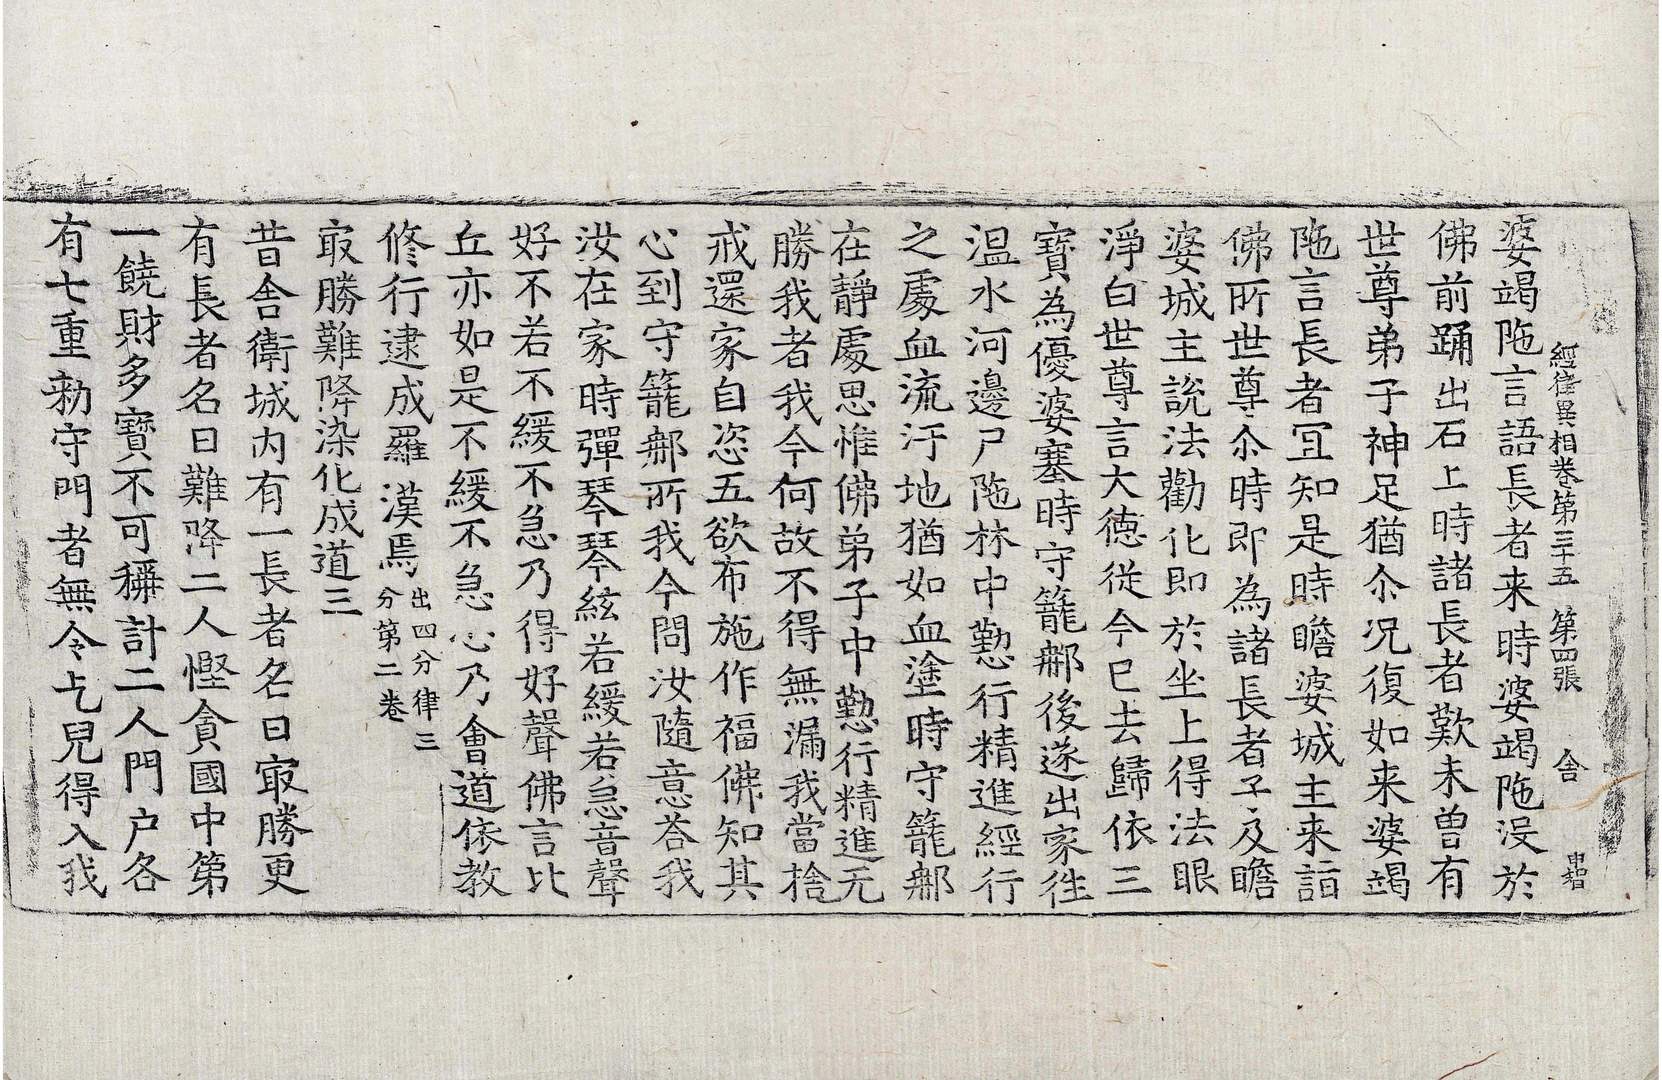 經律異相卷第三十五 第四張 舍
婆竭陁言語長者来時婆竭陁没於
佛前踊出石上時諸長者歎未曾有
世尊弟子神足猶尒况復如来婆竭
陁言長者冝知是時瞻婆城主来詣
佛所世尊尒時即為諸長者子及瞻
婆城主說法勸化即於坐上得法眼
淨白世尊言大德從今已去歸依三
寶為優婆塞時守籠䣝後遂出家徃
温水河邊尸陁林中懃行精進經行
之處血流汙地猶如血塗時守籠䣝
在靜處思惟佛弟子中懃行精進无
勝我者我今何故不得無漏我當捨
戒還家自恣五欲布施作福佛知其
心到守籠䣝所我今問汝隨意荅我
汝在家時彈琴琴絃若緩若急音聲
好不若不緩不急乃得好聲佛言比
丘亦如是不緩不急心乃會道依教
修行逮成羅漢焉出四分律三分第二卷
㝡勝難降染化成道三
昔舍衛城内有一長者名曰㝡勝更
有長者名曰難降二人慳貪國中第
一饒財多寶不可稱計二人門户各
有七重勑守門者無令乞兒得入我